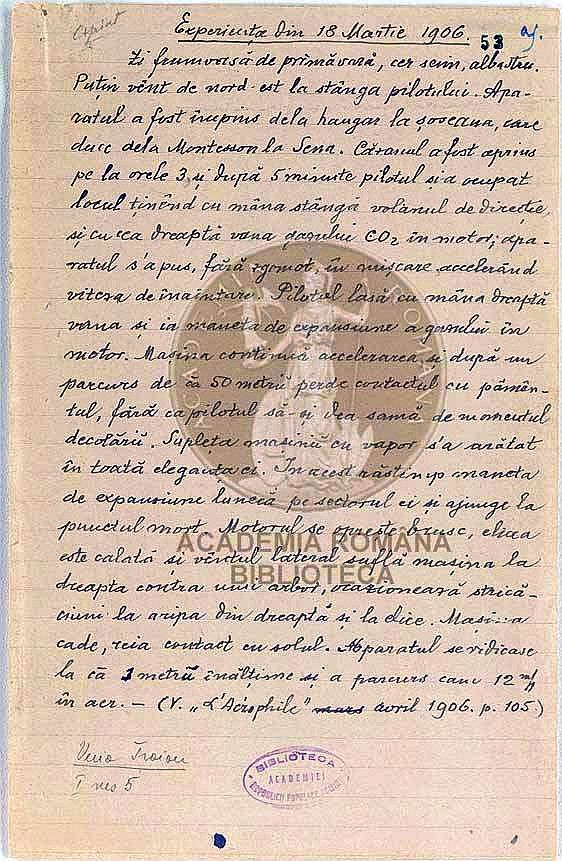 Experiența din 18 Martie 1906.
53
Zi frumoasă de primăvară, cer senin, albastru.
Puțin vînt de nord-est la stânga pilotului. Apa-
ratul a fost împins dela hangar la șoseaua, care
duce dela Montesson la Sena. Căzanul a fost aprins
pe la orele 3, și după 5 minute pilotul și a ocupat
locul ținând cu mâna stângă volanul de direcție,
și cu cea dreaptă vana gazului CO2 în motor; apa-
ratul s'a pus, fără sgomot, în mișcare accelerând
viteza de înaintare. Pilotul lasă cu mâna dreaptă
vana și ia maneta de expansiune a gazului în
motor. Mașina continuă accelerarea, și după un
parcurs de ca 50 metrii perde contactul cu pămên-
tul, fără ca pilotul să-și dea samă de momentul
decolării. Suplețea mașinii cu vapor s'a arătat
în toată eleganța ei. In acest răstimp maneta
de expansiune lunecă pe sectorul ei și ajunge la
punctul mort. Motorul se oprește brusc, elicea
este calată și vêntul lateral suflă mașina la
dreapta contra unui arbor, ocazionează strică-
ciuni la aripa din dreaptă și la elice. Mașina
cade, reia contact cu solul. Aparatul se ridicase
la ca 1 metru înălțime și a parcurs cam 12 m
în aer. — (V. „L'Aérophile" mars avril 1906. p. 105)
ACADEMIA ROMÂNA
BIBLIOTECA
Vuia Traian
I ms 5
BIBLIOTECA
ACADEMIEI
REPUBLICII POPULARE ROMÎNE